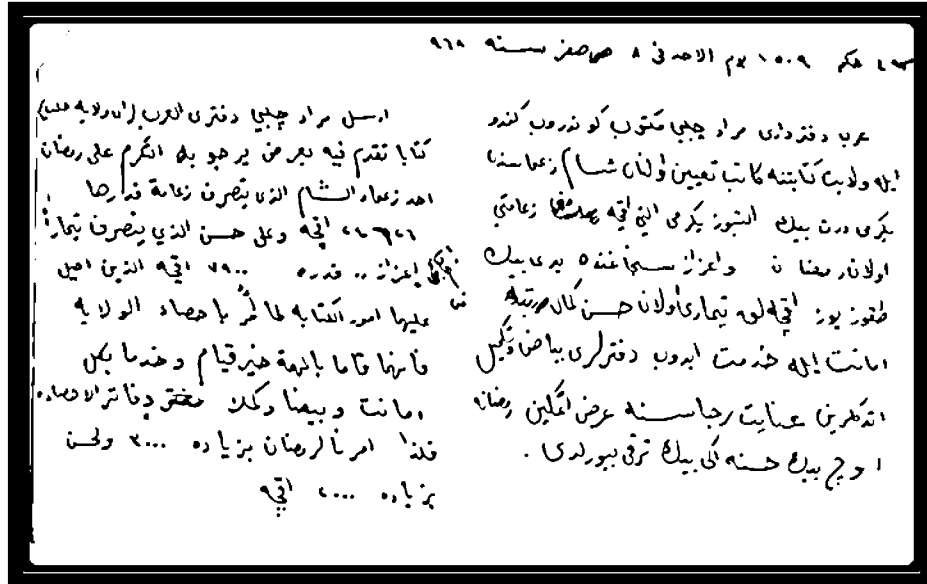 ٤٩٣ حكم ١٥٠٩ يوم الاحد فى ٨ صفر سنه ٩٦٨
عرب دفتردارى مراد چلبى مكتوب كوندروب كندو
ايله ولايت كتابتنه كاتب تعيين اولنان شام زعماسندن
يكرمى درت بيك التيوز يكرمى التى اقچه زعامتى
اولان رمضان و اعزاز سنجاغنده يدى بيك
طقوز يوز اقچه لق تيمارى اولان حسن كمال
امانت ايله خدمت ايدوب دفترلرى بياض و تكميل
اتدكلرين عنايت رجاسنه عرض اتمكين رمضانه
اوچ بيك حسنه اكى بيك ترقى بيورلدى .
ارسل مراد چلبي دفترى العرب الى ولاية حلب
كتابا تقدم فيه بعرض يرجو به التكرم على رمضان
احد زعماء الشام الذى يتصرف زعامة قدرها
٢٤٦٢٦ اقچه وعلى حسن الذي يتصرف تيمارا
في سنجاق إعزاز .. قدره ٧٩٠٠ اقچه الذين احيل
عليهما امور الكتابه لما أمر باحصاء الولايه
فانهما قاما بالمهمة خير قيام وخدما بكل
امانت وبيضا وكملا دفاتر الاحصاء
فلذا امرنا لرمضان بزياده ٣٠٠٠ ولحسن
بزياده ٢٠٠٠ اقچه